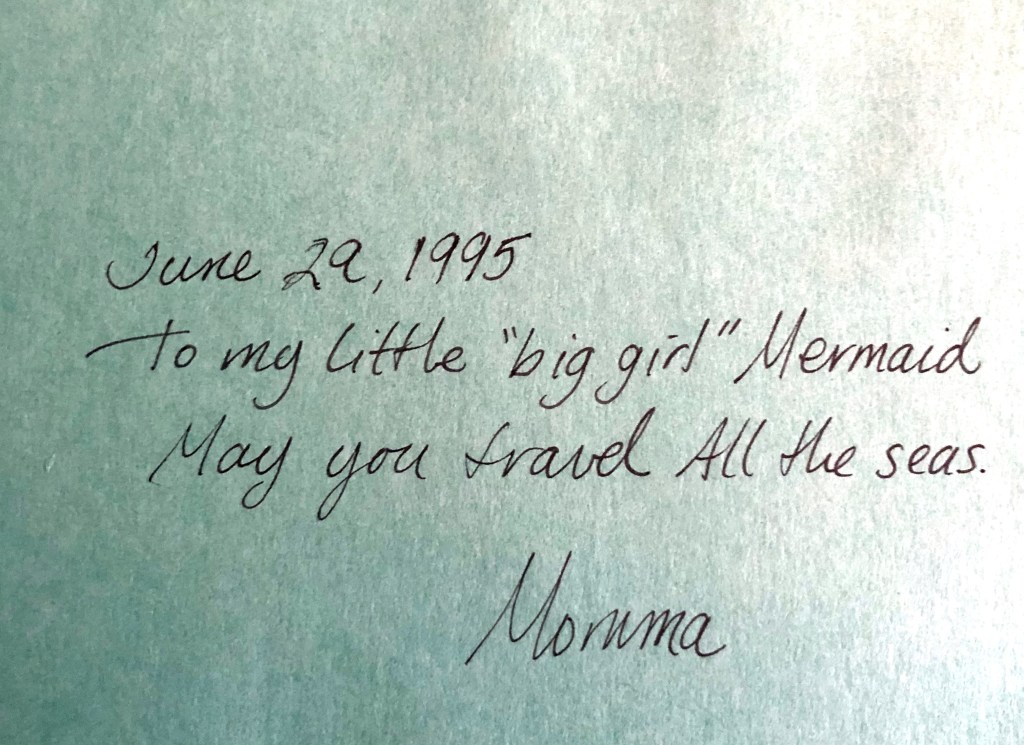 June 29, 1995
To my little "big girl" Mermaid
May you travel All the seas.
Momma